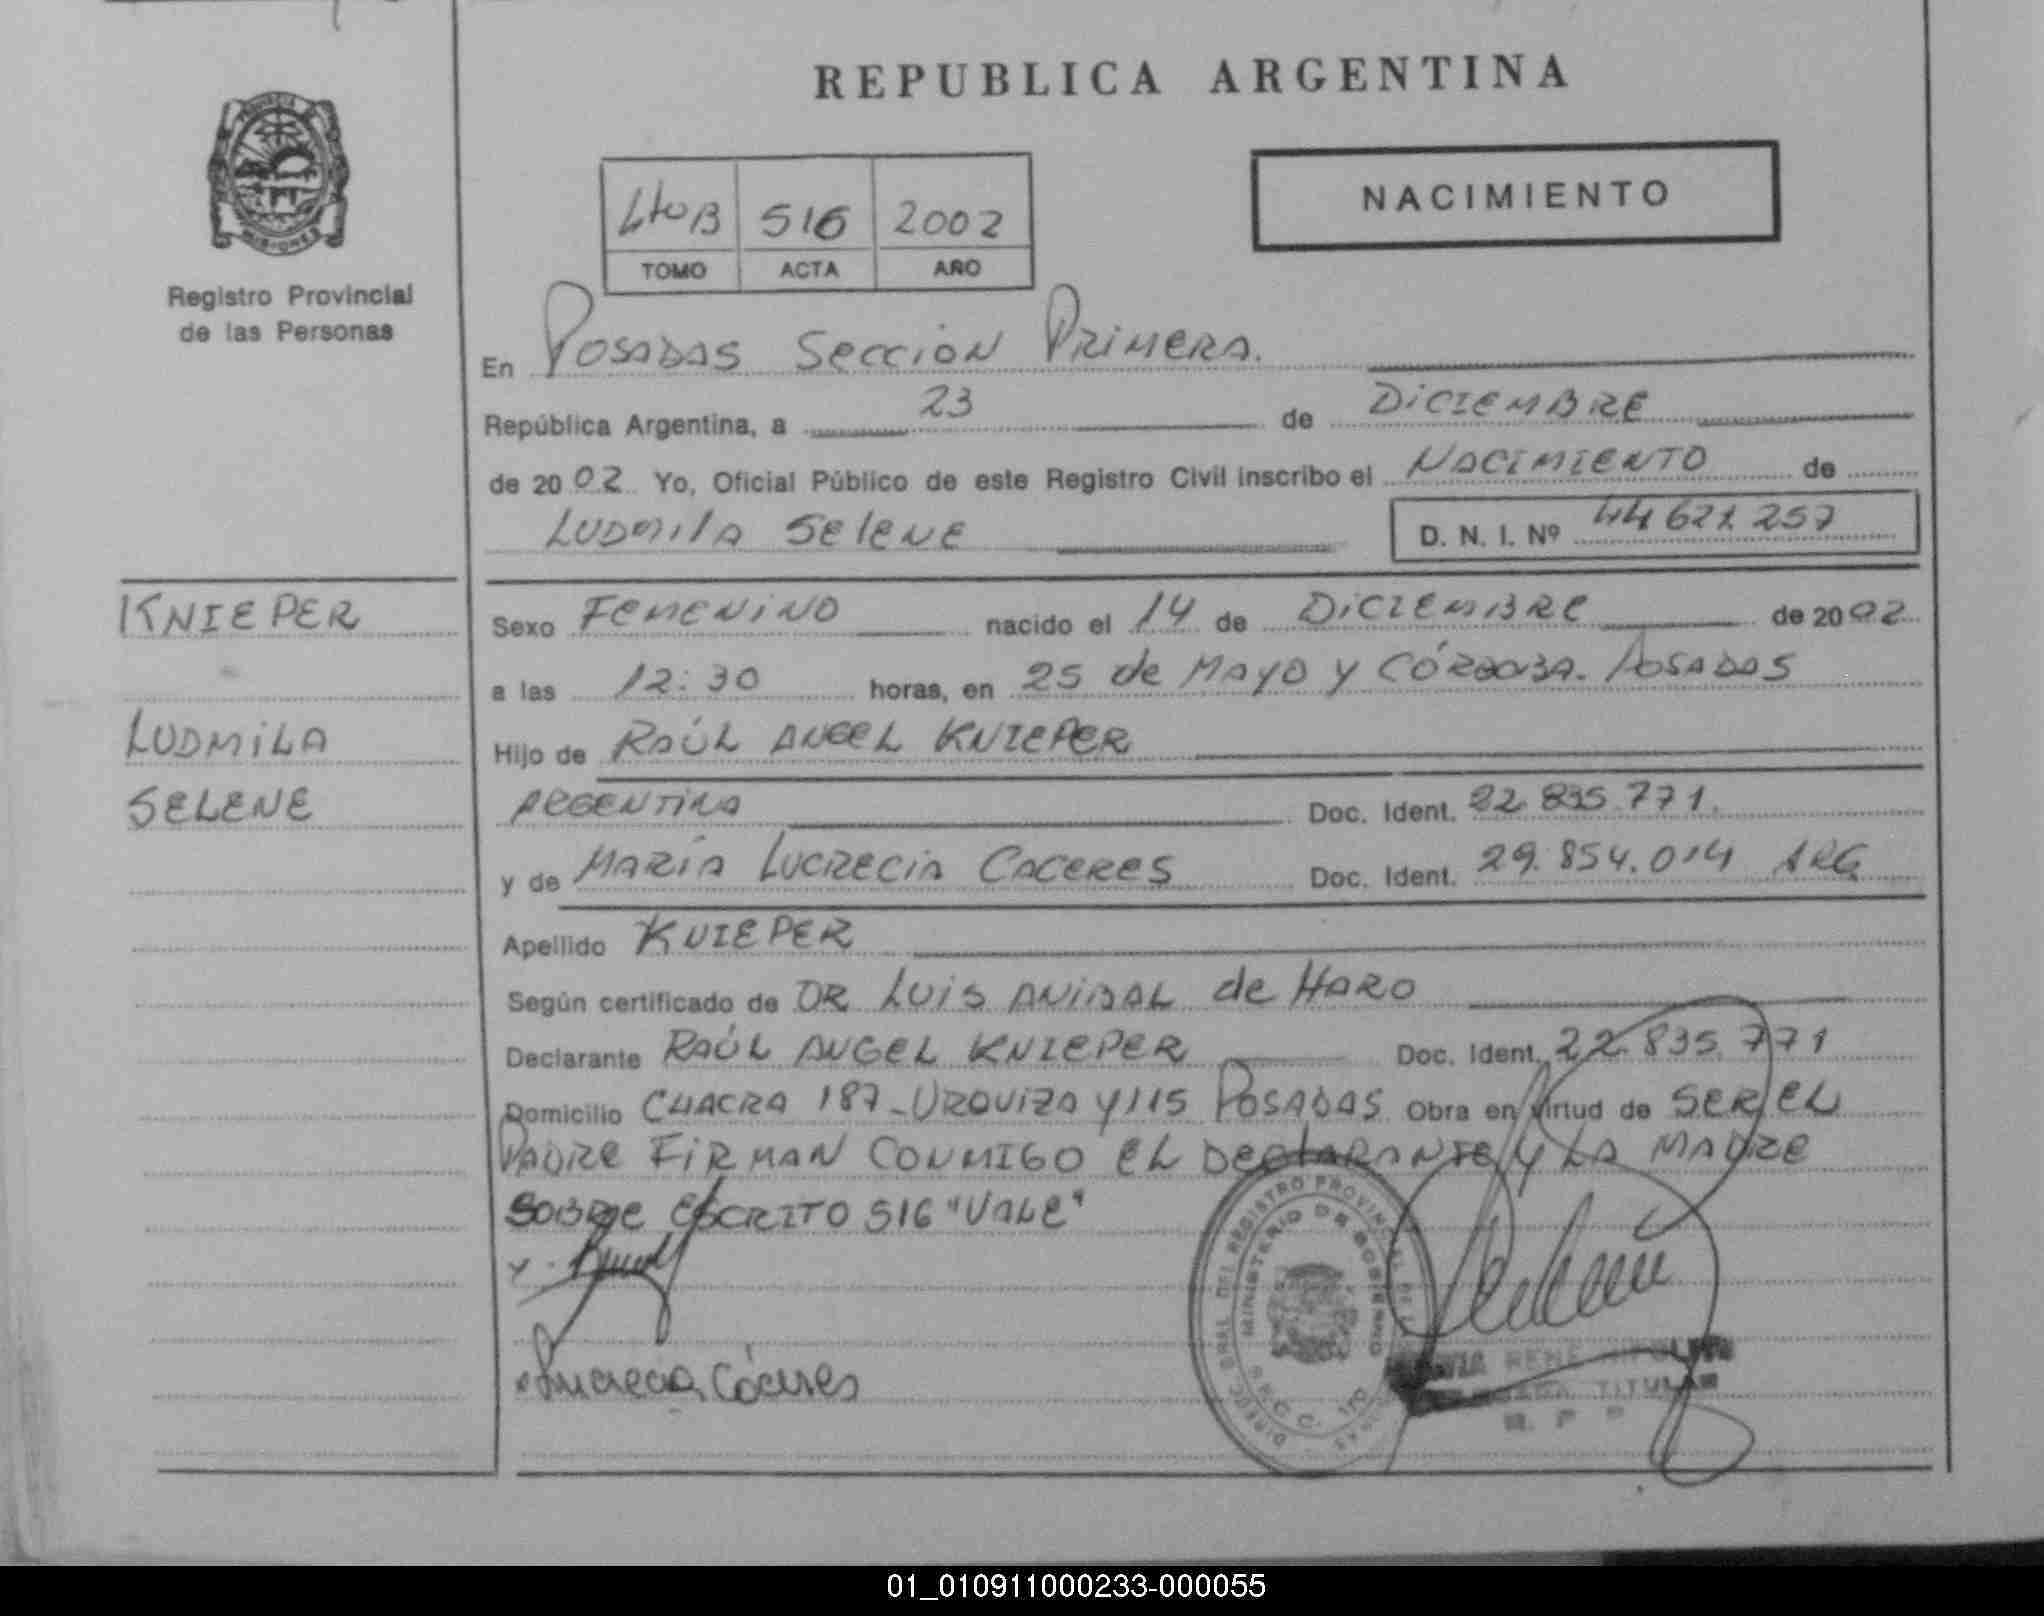 REPUBLICA ARGENTINA
NACIMIENTO
516 2002
TOMO ACTA AÑO
PROVINCIA
MISIONES
Registro Provincial
de las Personas
En POSADAS SECCION PRIMERA.
República Argentina, a 23 de DICIEMBRE
de 2002 Yo, Oficial Público de este Registro Civil inscribo el NACIMIENTO de
LUDMILA SELENE
D. N. I. Nº 44 621 257
KNIEPER
LUDMILA
SELENE
Sexo FEMENINO nacido el 14 de DICIEMBRE de 2002
a las 12:30 horas, en 25 de MAYO Y CÓRDOBA. POSADAS
Hijo de RAÚL ANGEL KNIEPER
ARGENTINA Doc. Ident. 22.835.771.
y de MARÍA LUCRECIA CACERES Doc. Ident. 29.854.014 ARG
Apellido KNIEPER
Según certificado de DR LUIS ANIBAL de HARO
Declarante RAÚL ANGEL KNIEPER Doc. Ident. 22.835.771
Domicilio CHACRA 187-URQUIZA Y 115 POSADAS Obra en virtud de SER EL
PADRE FIRMAN CONMIGO EL DECLARANTE Y LA MADRE
SOBRE ESCRITO 516 "VALE"
Lucrecia Cáceres
DIREC. GRAL. DEL REGISTRO PROVINCIAL DE LAS PERSONAS
MINISTERIO DE GOBIERNO
RENE
TITULAR
R. P. P.
01_010911000233-000055